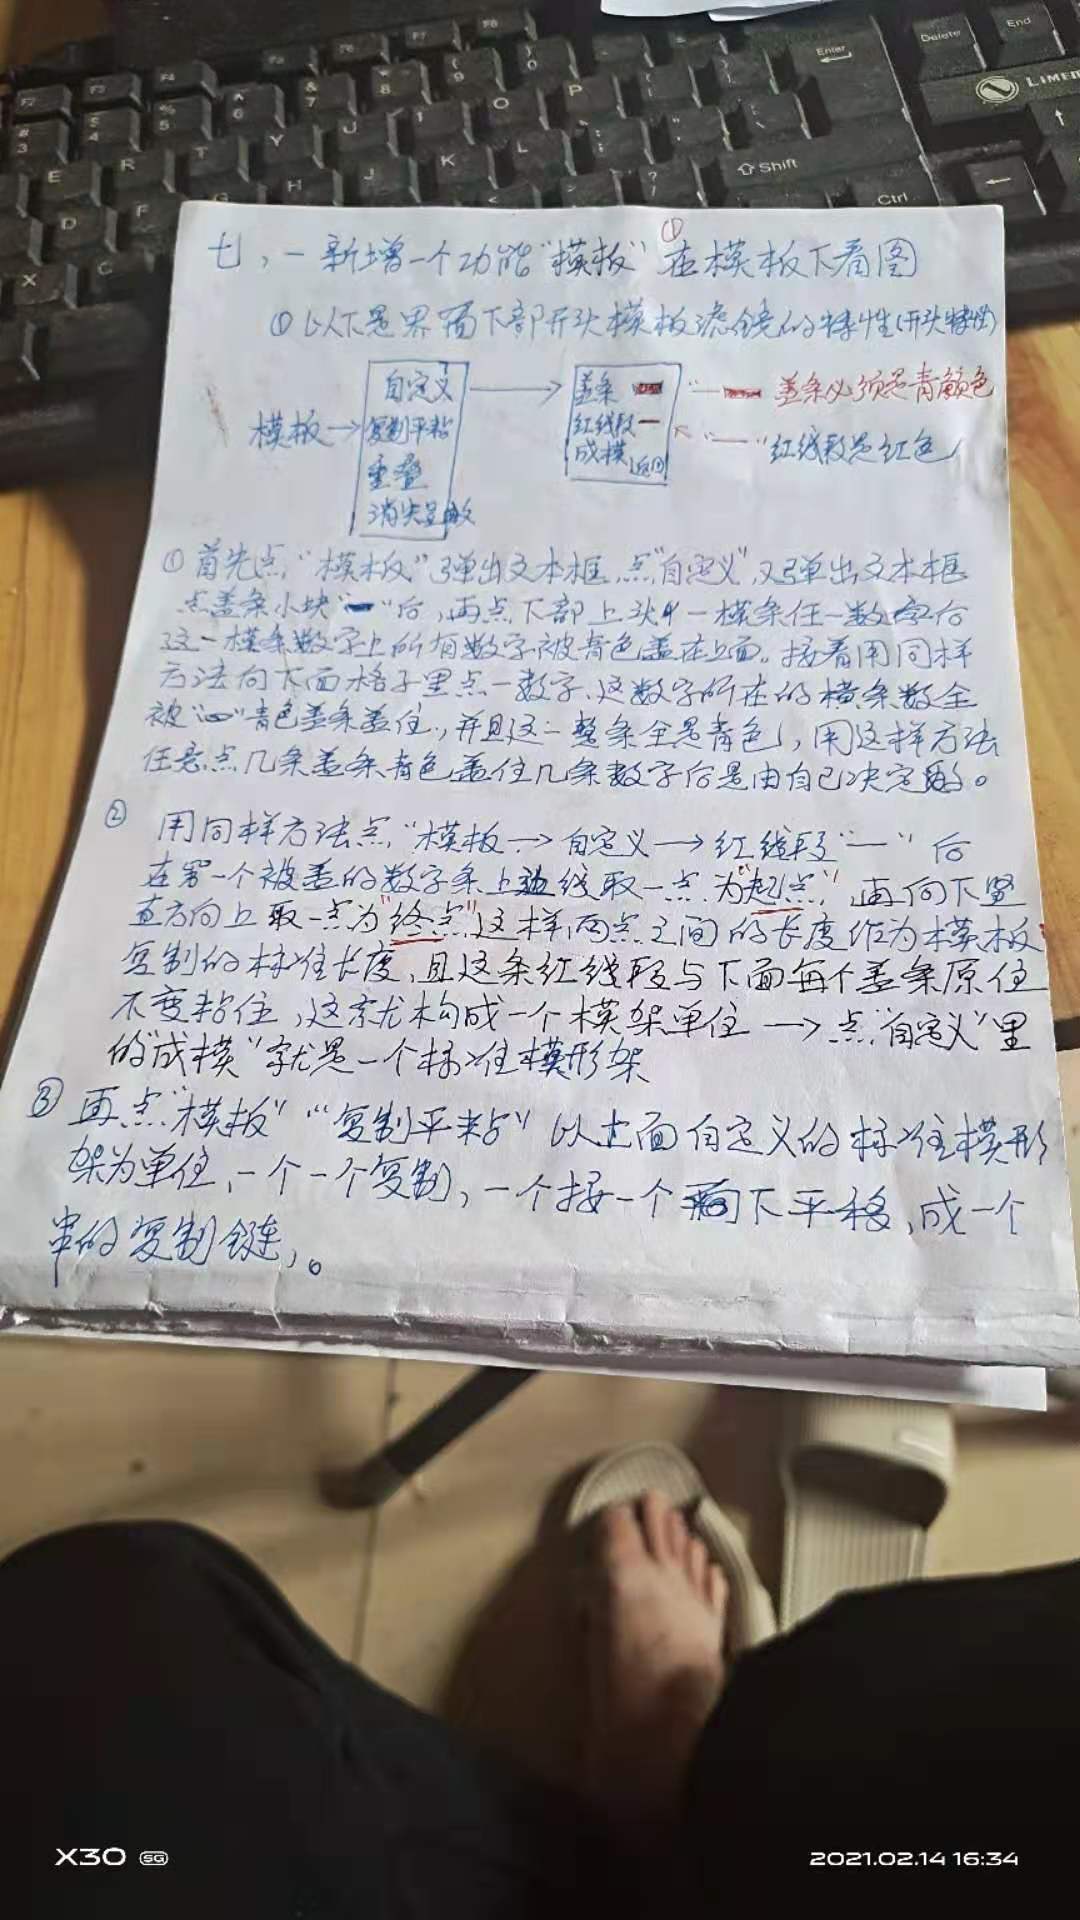 七，一新增一个功能“模板”①在模板下看图
①以下是界面下部开头模板滤镜的特性(开头特性)
模板→
自定义
复制平粘
重叠
消失
盖条
红线段一
成模 返回
盖条必须是青颜色
“—”红线段是红色
①首先点“模板”弹出文本框,点“自定义”,又弹出文本框
点盖条小块“ ”后,再点下部上头第一横条任一数字后
这一横条数字上所有数字被青色盖在上面。接着用同样
方法向下面格子里点一数字、这数字所在的横条数全
被“ ”青色盖条盖住,并且这一整条全是青色,用这样方法
任意点几条盖条青色盖住几条数字后是由自己决定的。
② 用同样方法点“模板→自定义→红线段“—”后
在第一个被盖的数字条上边线取一点为“起点”,再向下竖
直方向上取一点为“终点”这样两点之间的长度作为模板
复制的标准长度,且这条红线段与下面每个盖条原位
不变粘住,这就构成一个模架单位→点“自定义”里
的“成模”就是一个标准模形架
③ 再点“模板”“复制平粘”以上面自定义的标准模形
架为单位、一个一个复制,一个接一个向下平移,成一个
串的复制链,。
F2
F4
F6
F8
Enter
Delete
End
Shift
Ctrl
E
R
T
Y
U
I
O
P
D
F
G
H
J
K
L
X
C
3
4
5
6
7
8
9
X30 5G
2021.02.14 16:34